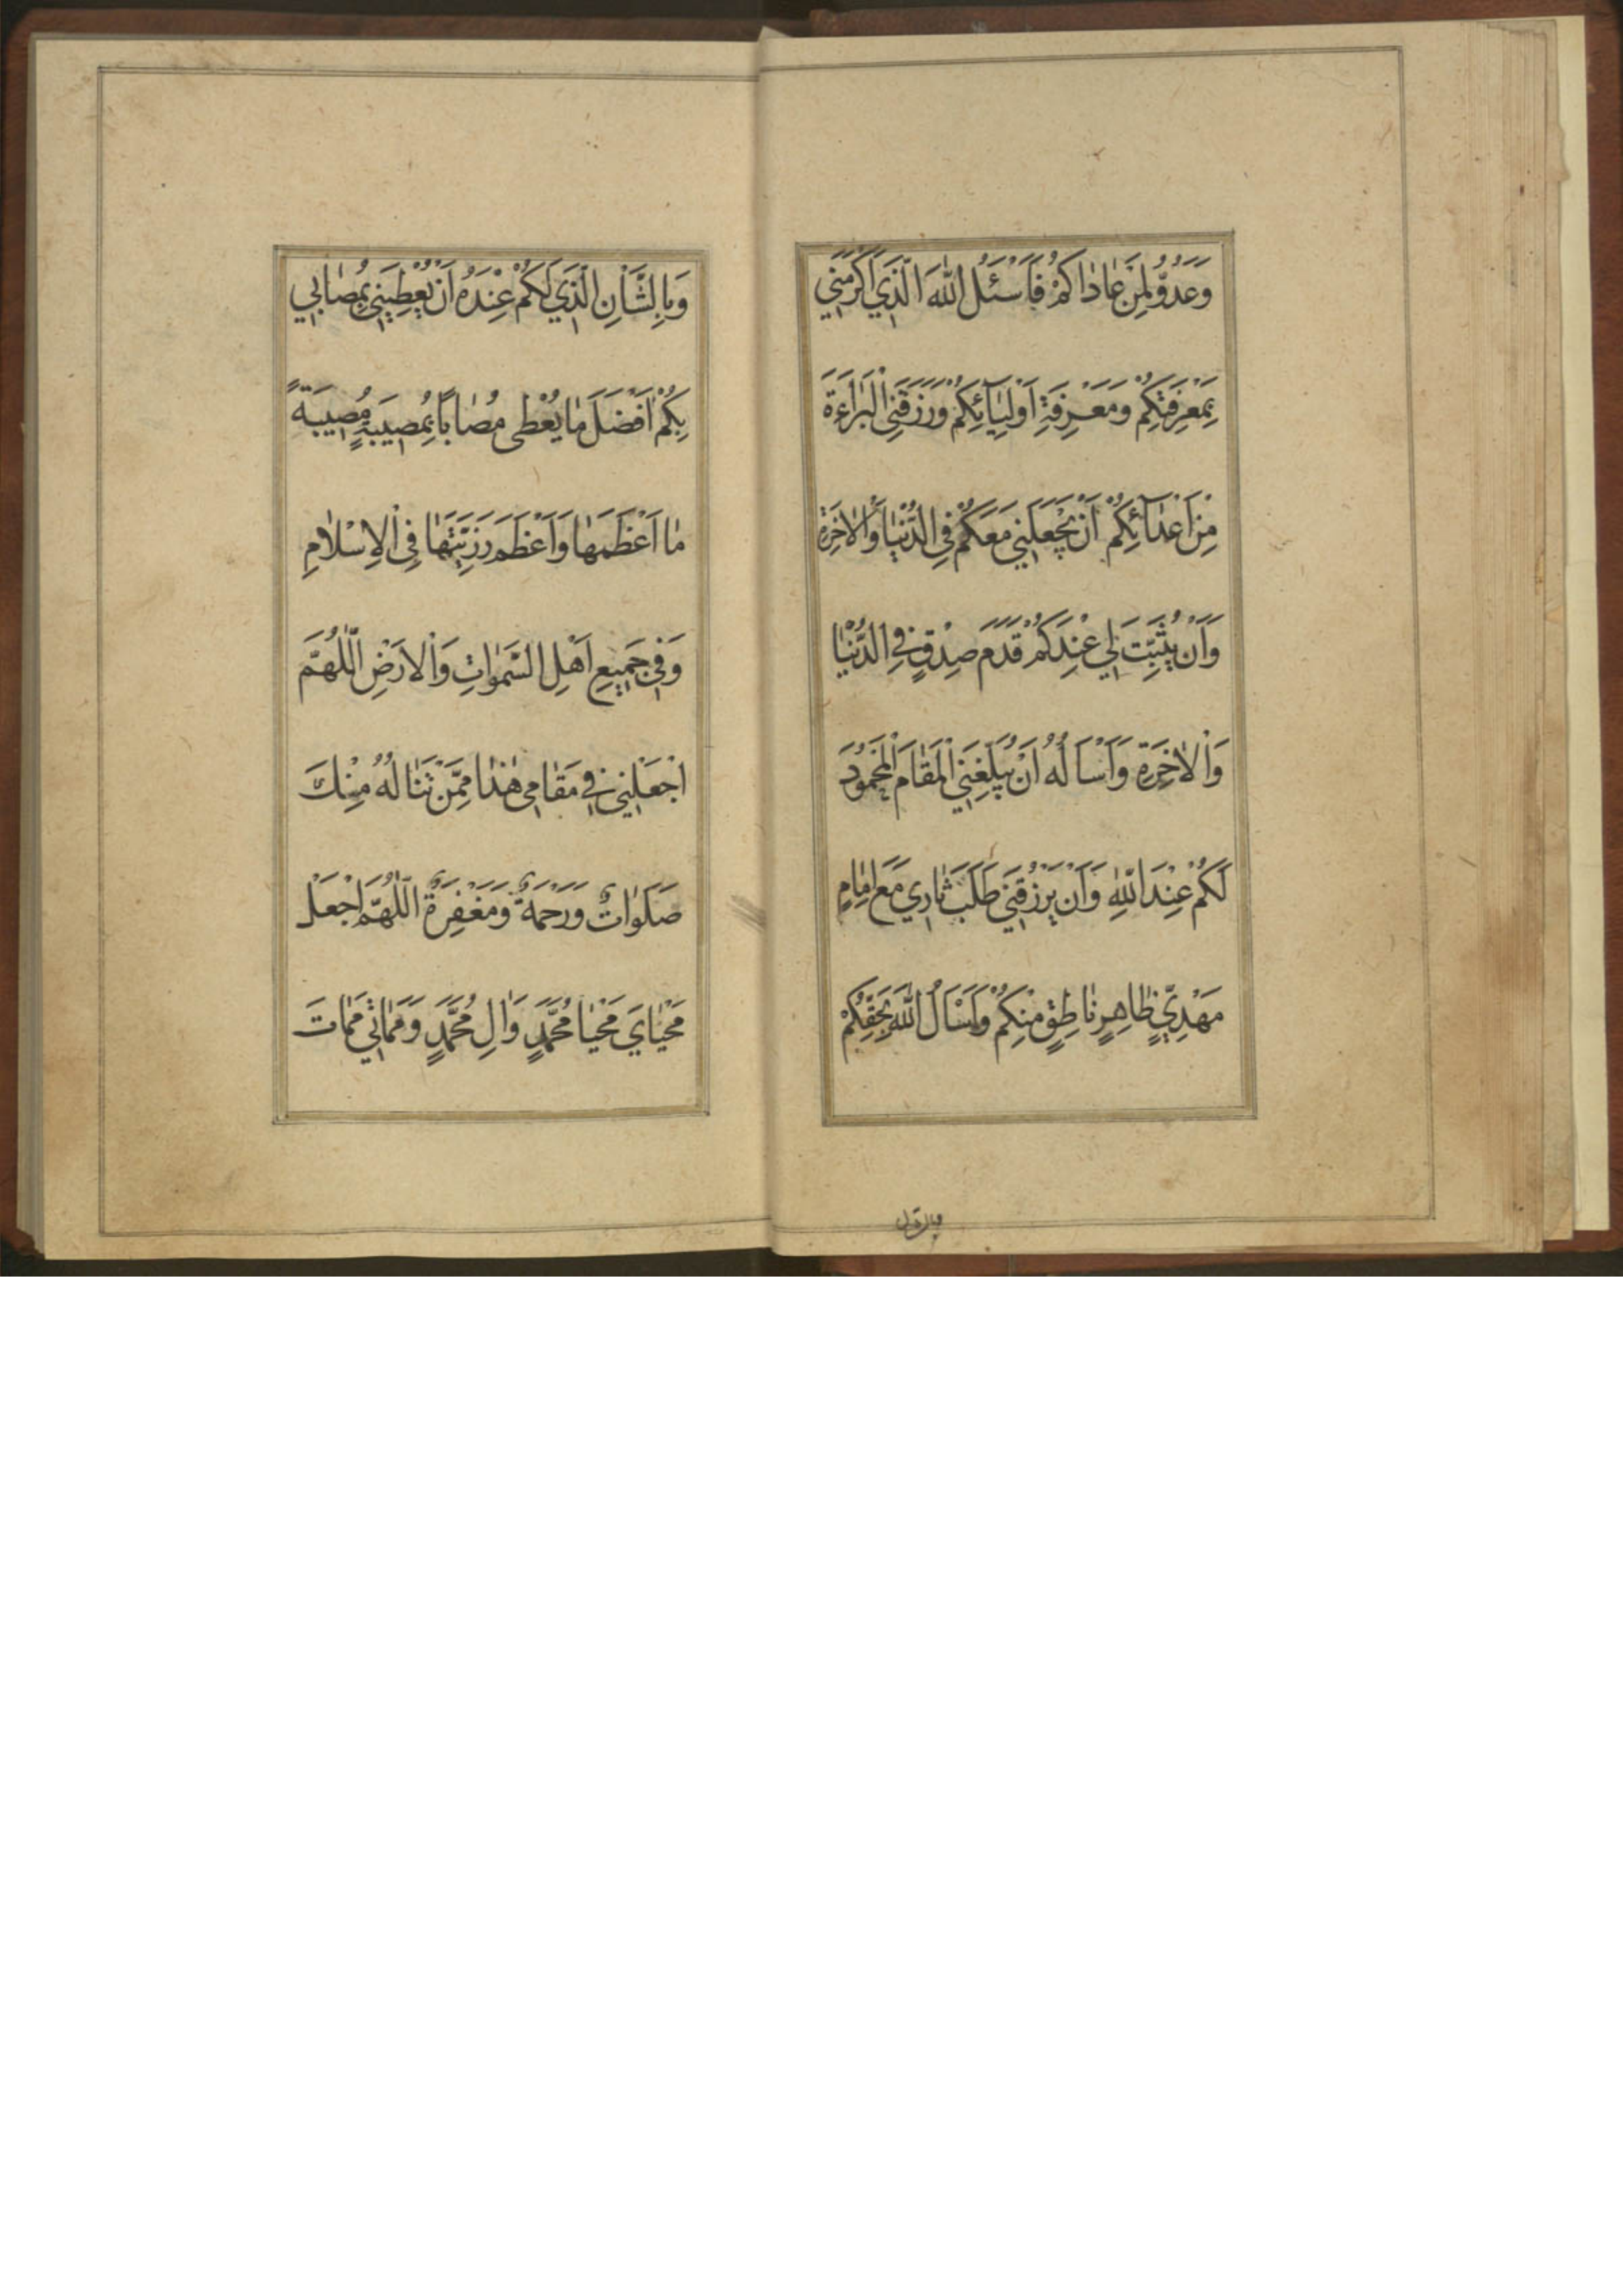 وَعَدُوٌّ لِمَنْ عَادَاكُمْ فَاَسْئَلُ اللّٰهَ الَّذِي اَكْرَمَنِي
بِمَعْرِفَتِكُمْ وَمَعْرِفَةِ اَوْلِيَآئِكُمْ وَرَزَقَنِي الْبَرَاءَةَ
مِنْ اَعْدَآئِكُمْ اَنْ يَجْعَلَنِي مَعَكُمْ فِي الدُّنْيَا وَالْاٰخِرَةِ
وَاَنْ يُثَبِّتَ لِي عِنْدَكُمْ قَدَمَ صِدْقٍ فِي الدُّنْيَا
وَالْاٰخِرَةِ وَاَسْاَلُهُ اَنْ يُبَلِّغَنِي الْمَقَامَ الْمَحْمُودَ
لَكُمْ عِنْدَ اللّٰهِ وَاَنْ يَرْزُقَنِي طَلَبَ ثَارِي مَعَ اِمَامٍ
مَهْدِيٍّ ظَاهِرٍ نَاطِقٍ مِنْكُمْ وَاَسْاَلُ اللّٰهَ بِحَقِّكُمْ
وَبِالشَّاْنِ الَّذِي لَكُمْ عِنْدَهُ اَنْ يُعْطِيَنِي بِمُصَابِي
بِكُمْ اَفْضَلَ مَا يُعْطٰى مُصَابًا بِمُصِيبَةٍ مُصِيبَةً
مَا اَعْظَمَهَا وَاَعْظَمَ رَزِيَّتَهَا فِي الْاِسْلَامِ
وَفِي جَمِيعِ اَهْلِ السَّمٰوَاتِ وَالْاَرْضِ اَللّٰهُمَّ
اجْعَلْنِي فِي مَقَامِي هٰذَا مِمَّنْ تَنَالُهُ مِنْكَ
صَلَوَاتٌ وَرَحْمَةٌ وَمَغْفِرَةٌ اَللّٰهُمَّ اجْعَلْ
مَحْيَايَ مَحْيَا مُحَمَّدٍ وَاٰلِ مُحَمَّدٍ وَمَمَاتِي مَمَاتَ